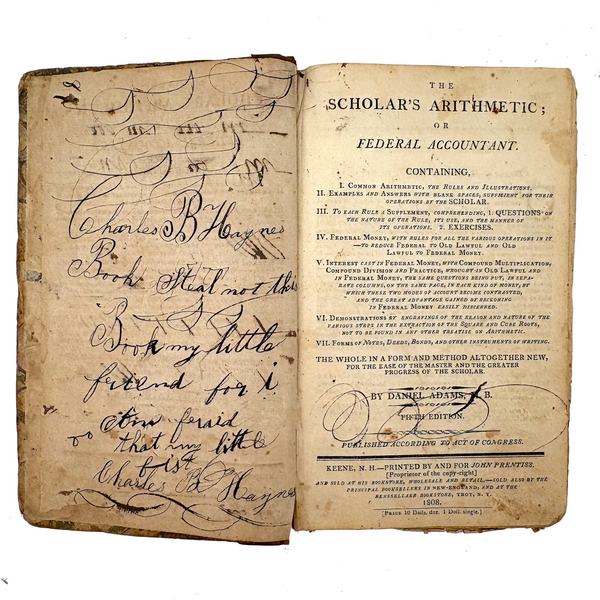 Charles B Haynes
Book Steal not this
Book my little
friend for i
am feraid
that my little
fist
Charles B Haynes
THE
SCHOLAR'S ARITHMETIC;
OR
FEDERAL ACCOUNTANT.
CONTAINING,
I. COMMON ARITHMETIC, THE RULES AND ILLUSTRATIONS.
II. EXAMPLES AND ANSWERS WITH BLANK SPACES, SUFFICIENT FOR THEIR
OPERATIONS BY THE SCHOLAR.
III. TO EACH RULE A SUPPLEMENT, COMPREHENDING, 1. QUESTIONS ON
THE NATURE OF THE RULE, ITS USE, AND THE MANNER OF
ITS OPERATIONS. 2. EXERCISES.
IV. FEDERAL MONEY, WITH RULES FOR ALL THE VARIOUS OPERATIONS IN IT
—TO REDUCE FEDERAL TO OLD LAWFUL AND OLD
LAWFUL TO FEDERAL MONEY.
V. INTEREST CAST IN FEDERAL MONEY, WITH COMPOUND MULTIPLICATION,
COMPOUND DIVISION AND PRACTICE, WROUGHT IN OLD LAWFUL AND
IN FEDERAL MONEY, THE SAME QUESTIONS BEING PUT, IN SEPA-
RATE COLUMNS, ON THE SAME PAGE, IN EACH KIND OF MONEY, BY
WHICH THESE TWO MODES OF ACCOUNT BECOME CONTRASTED,
AND THE GREAT ADVANTAGE GAINED BY RECKONING
IN FEDERAL MONEY EASILY DISCERNED.
VI. DEMONSTRATIONS BY ENGRAVINGS OF THE REASON AND NATURE OF THE
VARIOUS STEPS IN THE EXTRACTION OF THE SQUARE AND CUBE ROOTS,
NOT TO BE FOUND IN ANY OTHER TREATISE ON ARITHMETIC.
VII. FORMS OF NOTES, DEEDS, BONDS, AND OTHER INSTRUMENTS OF WRITING.
THE WHOLE IN A FORM AND METHOD ALTOGETHER NEW,
FOR THE EASE OF THE MASTER AND THE GREATER
PROGRESS OF THE SCHOLAR.
BY DANIEL ADAMS, M. B.
FIFTH EDITION.
PUBLISHED ACCORDING TO ACT OF CONGRESS.
KEENE, N. H.—PRINTED BY AND FOR JOHN PRENTISS,
[Proprietor of the copy-right]
AND SOLD AT HIS BOOKSTORE, WHOLESALE AND RETAIL,—SOLD ALSO BY THE
PRINCIPAL BOOKSELLERS IN NEW-ENGLAND, AND AT THE
RENSSELAER BOOKSTORE, TROY, N. Y.
1808.
[PRICE 10 Dolls. doz. 1 Doll. single.]